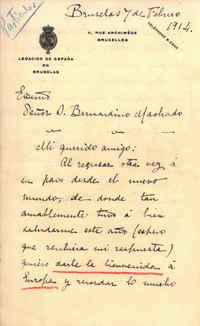 Bruselas 7 de Febrero
1914.
LEGACIÓN DE ESPAÑA
EN
BRUSELAS
11, RUE ARCHIMÈDE
BRUXELLES
Señor D. Bernardino Machado
Mi querido amigo:
Al regresar otra vez á
su pais desde el nuevo
mundo, de donde tan
amablemente tuvo á bien
saludarme este año (espero
que recibiera mi respuesta)
quiero darle la bienvenida á
Europa y recordar lo mucho